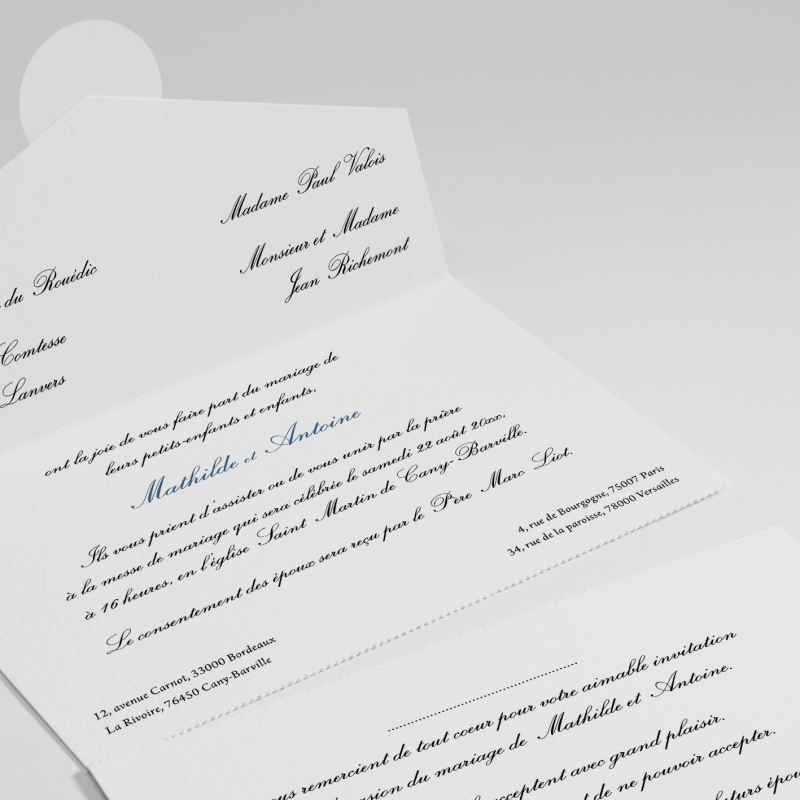 Madame Paul Valois
Monsieur et Madame
Jean Richemont
du Rouëdic
Comtesse
Lanvers
ont la joie de vous faire part du mariage de
leurs petits-enfants et enfants.
Mathilde et Antoine
Ils vous prient d'assister ou de vous unir par la prière
à la messe de mariage qui sera célébrée le samedi 22 août 20xx,
à 16 heures, en l'église Saint Martin de Cany-Barville.
Le consentement des époux sera reçu par le Père Marc Liot.
4, rue de Bourgogne, 75007 Paris
34, rue de la paroisse, 78000 Versailles
12, avenue Carnot, 33000 Bordeaux
La Rivoire, 76450 Cany-Barville
remercient de tout coeur pour votre aimable invitation
du mariage de Mathilde et Antoine.
acceptent avec grand plaisir.
de ne pouvoir accepter.